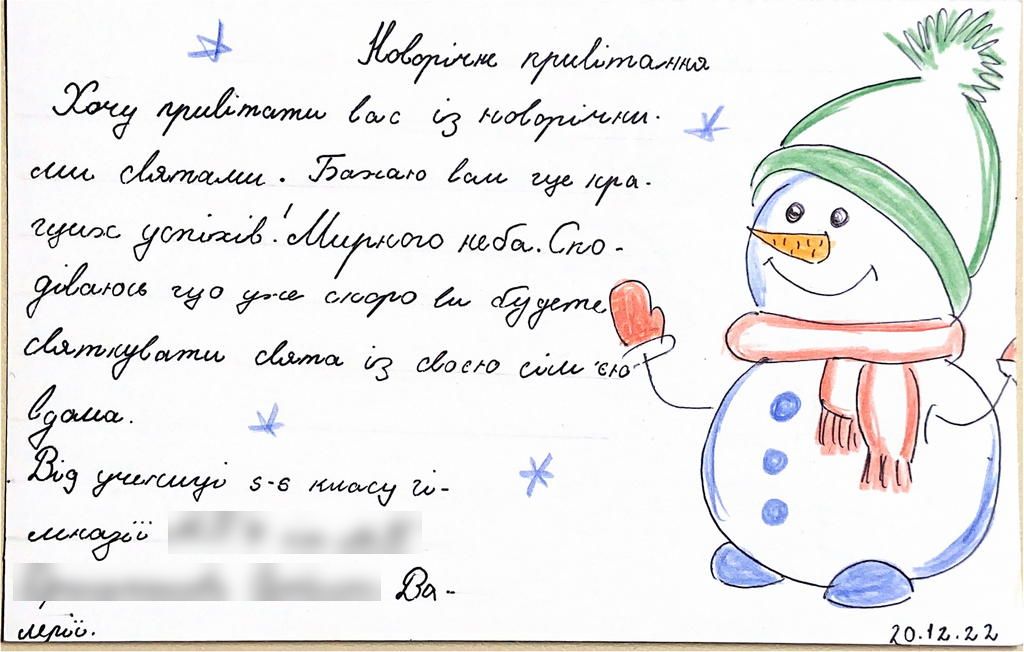 Новорічне привітання
Хочу привітати вас із новорічни-
ми святами. Бажаю вам ще кра-
щих успіхів! Мирного неба. Спо-
діваюсь що уже скоро ви будете
святкувати свята із своєю сім'єю
вдома.
Від учениці 5-в класу гі-
мназії
Ва-
лерії.
20.12.22